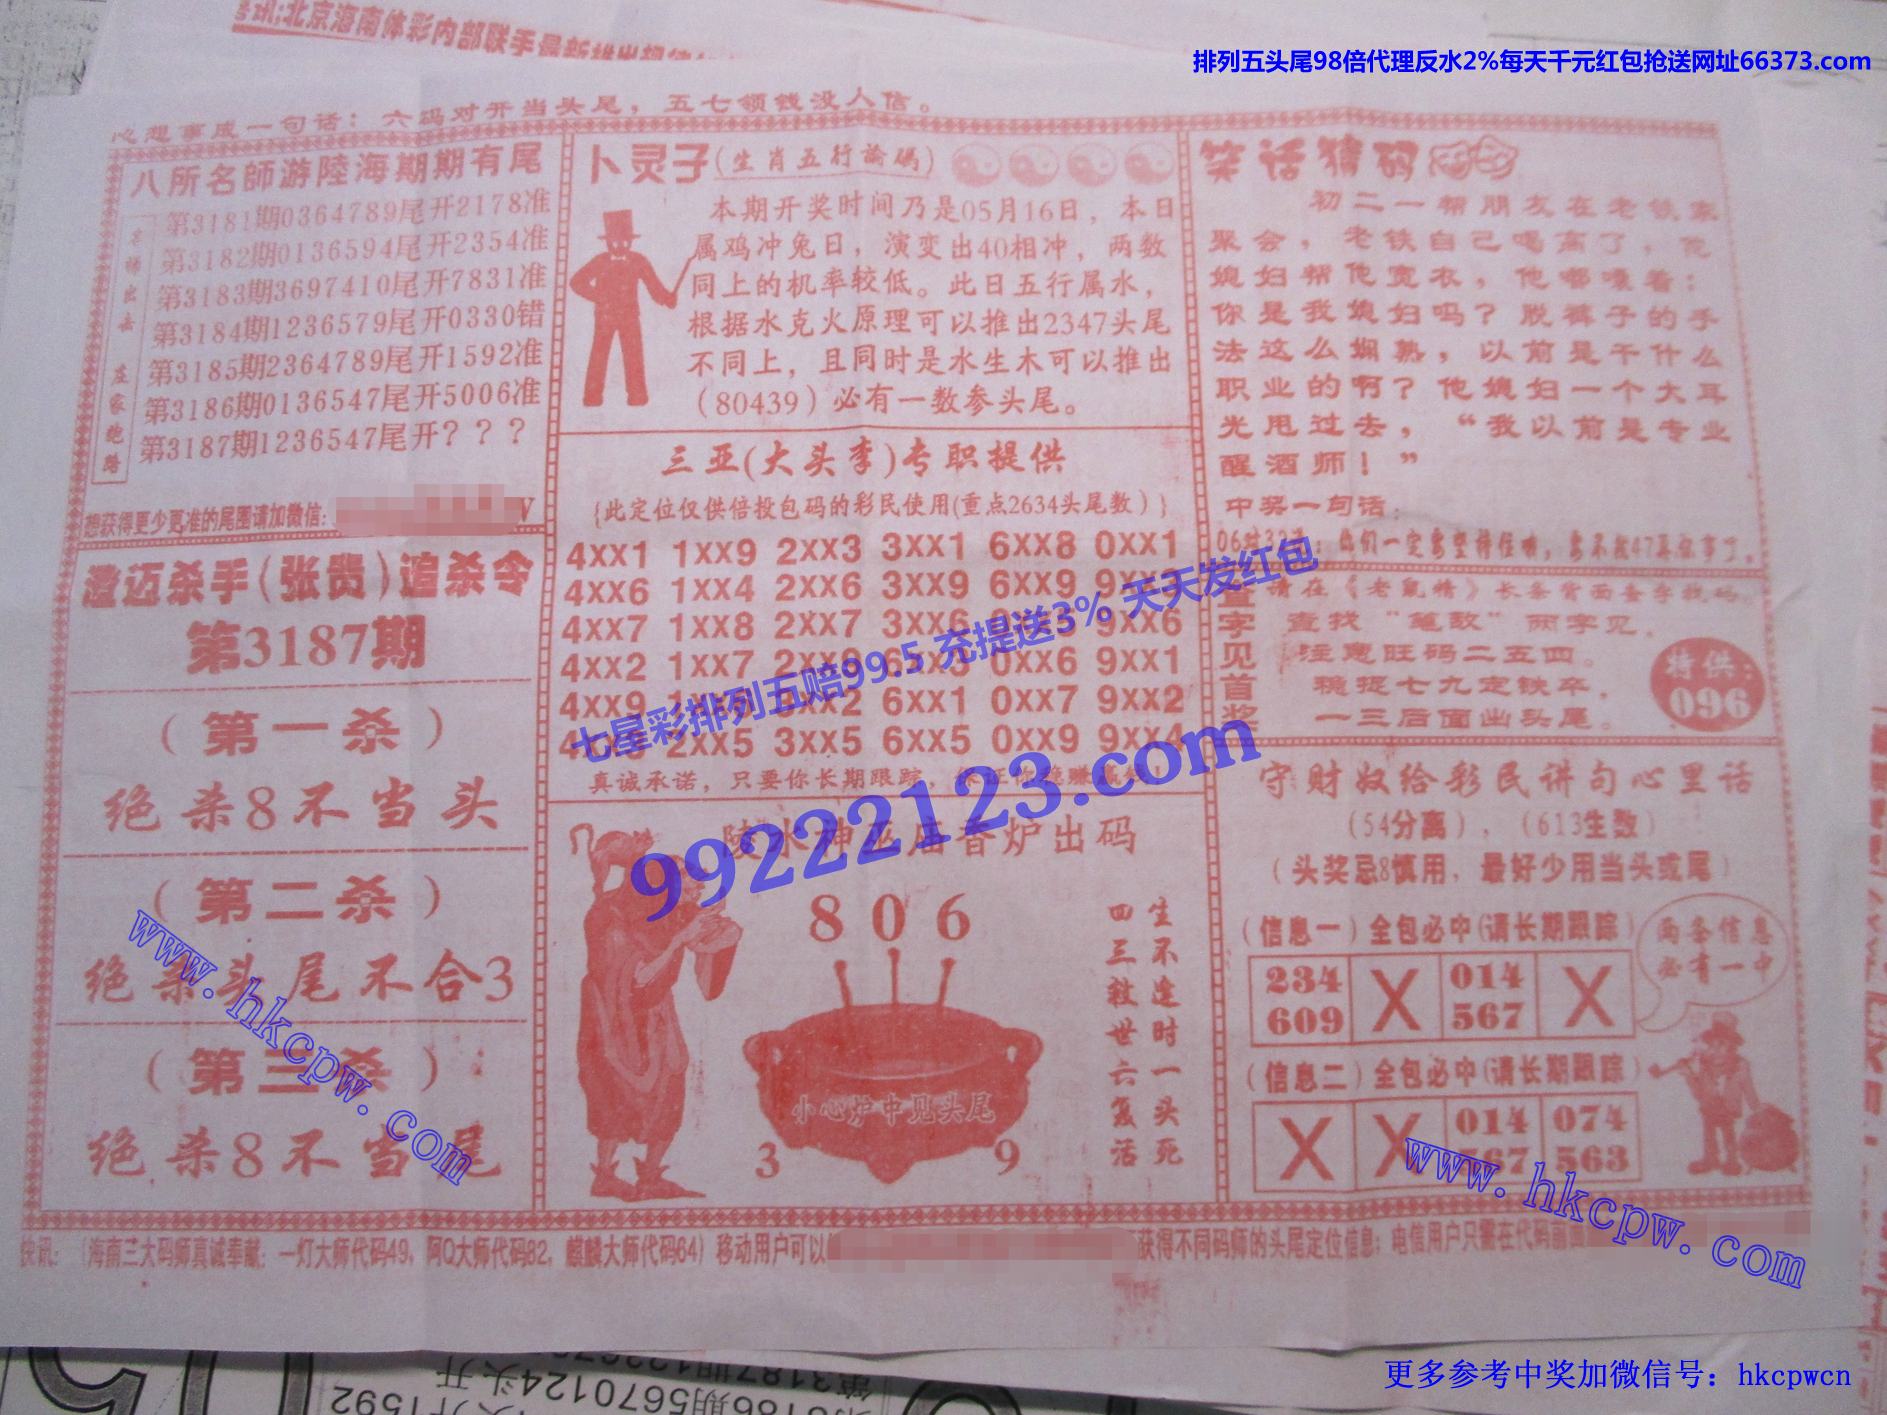 排列五头尾98倍代理反水2%每天千元红包抢送网址66373.com
心想事成一句话：六码对开当头尾，五七领钱没人信。
八所名師游陸海期期有尾
第3181期0364789尾开2178准
第3182期0136594尾开2354准
第3183期3697410尾开7831准
第3184期1236579尾开0330错
第3185期2364789尾开1592准
第3186期0136547尾开5006准
第3187期1236547尾开？？？
想获得更少更准的尾图请加微信:
澄迈杀手(张贵)追杀令
第3187期
(第一杀)
绝杀8不当头
(第二杀)
绝杀头尾不合3
(第三杀)
绝杀8不当尾
卜灵子(生肖五行論碼)
本期开奖时间乃是05月16日，本日
属鸡冲兔日，演变出40相冲，两数
同上的机率较低。此日五行属水，
根据水克火原理可以推出2347头尾
不同上，且同时是水生木可以推出
（80439）必有一数参头尾。
三亚(大头李)专职提供
{此定位仅供倍投包码的彩民使用(重点2634头尾数)}
4XX1 1XX9 2XX3 3XX1 6XX8 0XX1
4XX6 1XX4 2XX6 3XX9 6XX9
4XX7 1XX8 2XX7 3XX6 9XX6
4XX2 1XX7 0XX6 9XX1
4XX9 6XX1 0XX7 9XX2
2XX5 3XX5 6XX5 0XX9 9XX4
真诚承诺，只要你长期跟踪，保证你稳赚
陵水神巫庙香炉出码
8 0 6
生不逢时一头死
四三救世六复活
小心炉中见头尾
3 9
笑话猜码
初二一帮朋友在老铁家
聚会，老铁自己喝高了，他
媳妇帮他宽衣，他嘟囔着：
你是我媳妇吗？脱裤子的手
法这么娴熟，以前是干什么
职业的啊？他媳妇一个大耳
光甩过去，“我以前是专业
醒酒师！”
中奖一句话：
请在《老鼠精》长条背面查字找码。
查找“笔敌”两字见，
注意旺码二五四。
稳捉七九定铁卒，
一三后面出头尾。
查字见首奖
特供：
096
守财奴给彩民讲句心里话
(54分离)，(613生数)
(头奖忌8慎用，最好少用当头或尾)
(信息一)全包必中(请长期跟踪)
234 X 014 X
609 567
两条信息
必有一中
(信息二)全包必中(请长期跟踪)
X X 014 074
567 563
快讯：(海南三大码师真诚奉献：一灯大师代码49，阿Q大师代码82，麒麟大师代码64)移动用户可以
获得不同码师的头尾定位信息；电信用户只需在代码前面
七星彩排列五赔99.5 充提送3% 天天发红包
99222123.com
www.hkcpw.com
www.hkcpw.com
更多参考中奖加微信号：hkcpwcn